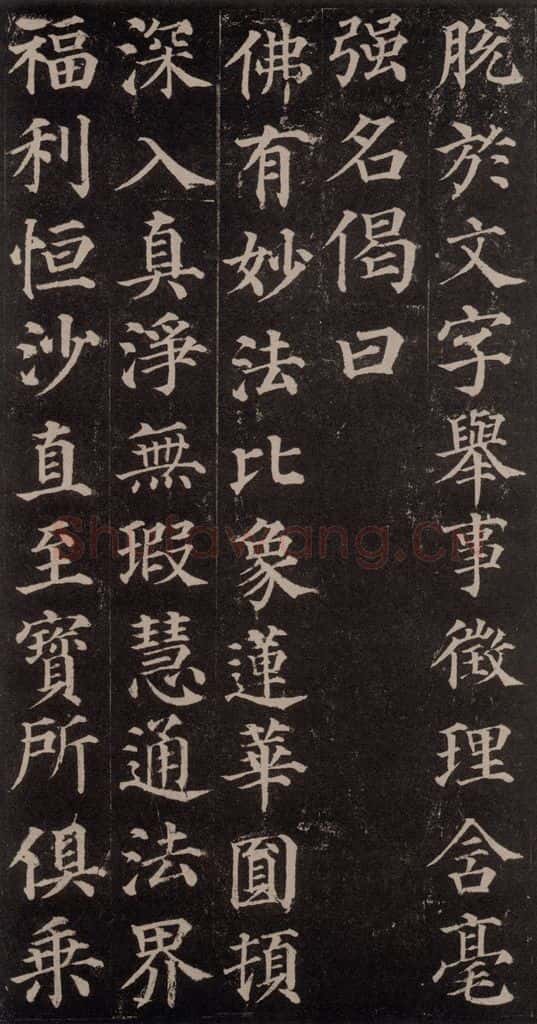 脫於文字舉事徵理含毫
强名偈曰
佛有妙法比象蓮華圓頓
深入真淨無瑕慧通法界
福利恒沙直至寶所俱乘
Shufawang.Cn